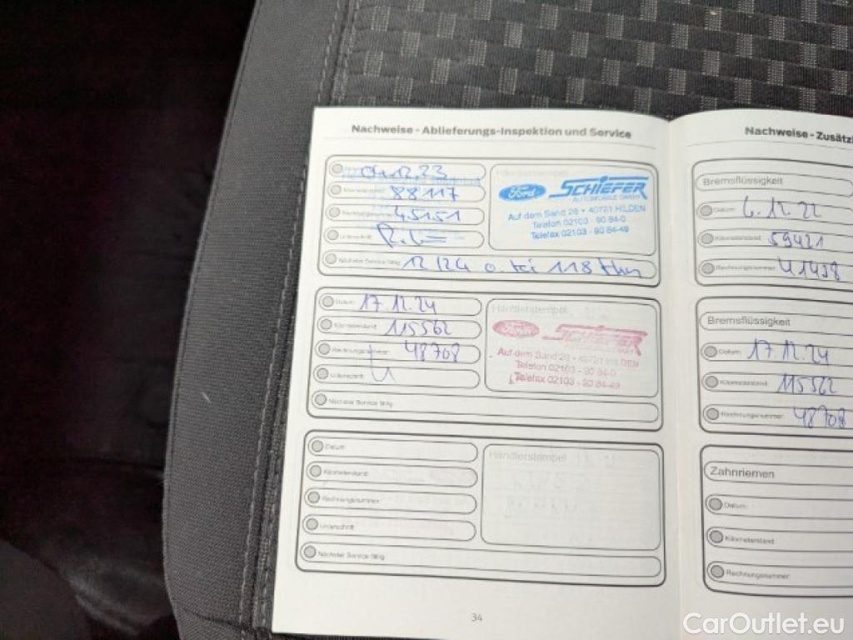 Nachweise - Ablieferungs-Inspektion und Service
88117
45151
12/24 o. bei 118 tkm
Nächster Service fällig
Ford SCHIEFER
AUTOMOBILE GMBH
Auf dem Sand 26 • 40721 HILDEN
Telefon 02103 - 90 84-0
Telefax 02103 - 90 84-49
Datum 17.12.24
Kilometerstand 115562
Rechnungsnummer 48708
Unterschrift
Nächster Service fällig
Händlerstempel
Ford SCHIEFER
Auf dem Sand 26 • 40721 HILDEN
Telefon 02103 - 90 84-0
Telefax 02103 - 90 84-49
Datum
Kilometerstand
Rechnungsnummer
Unterschrift
Nächster Service fällig
Händlerstempel
34
Nachweise - Zusätzl
Bremsflüssigkeit
Datum 6.12.22
Kilometerstand 59421
Rechnungsnummer 41438
Bremsflüssigkeit
Datum 17.12.24
Kilometerstand 115562
Rechnungsnummer 48708
Zahnriemen
Datum
Kilometerstand
Rechnungsnummer
CarOutlet.eu